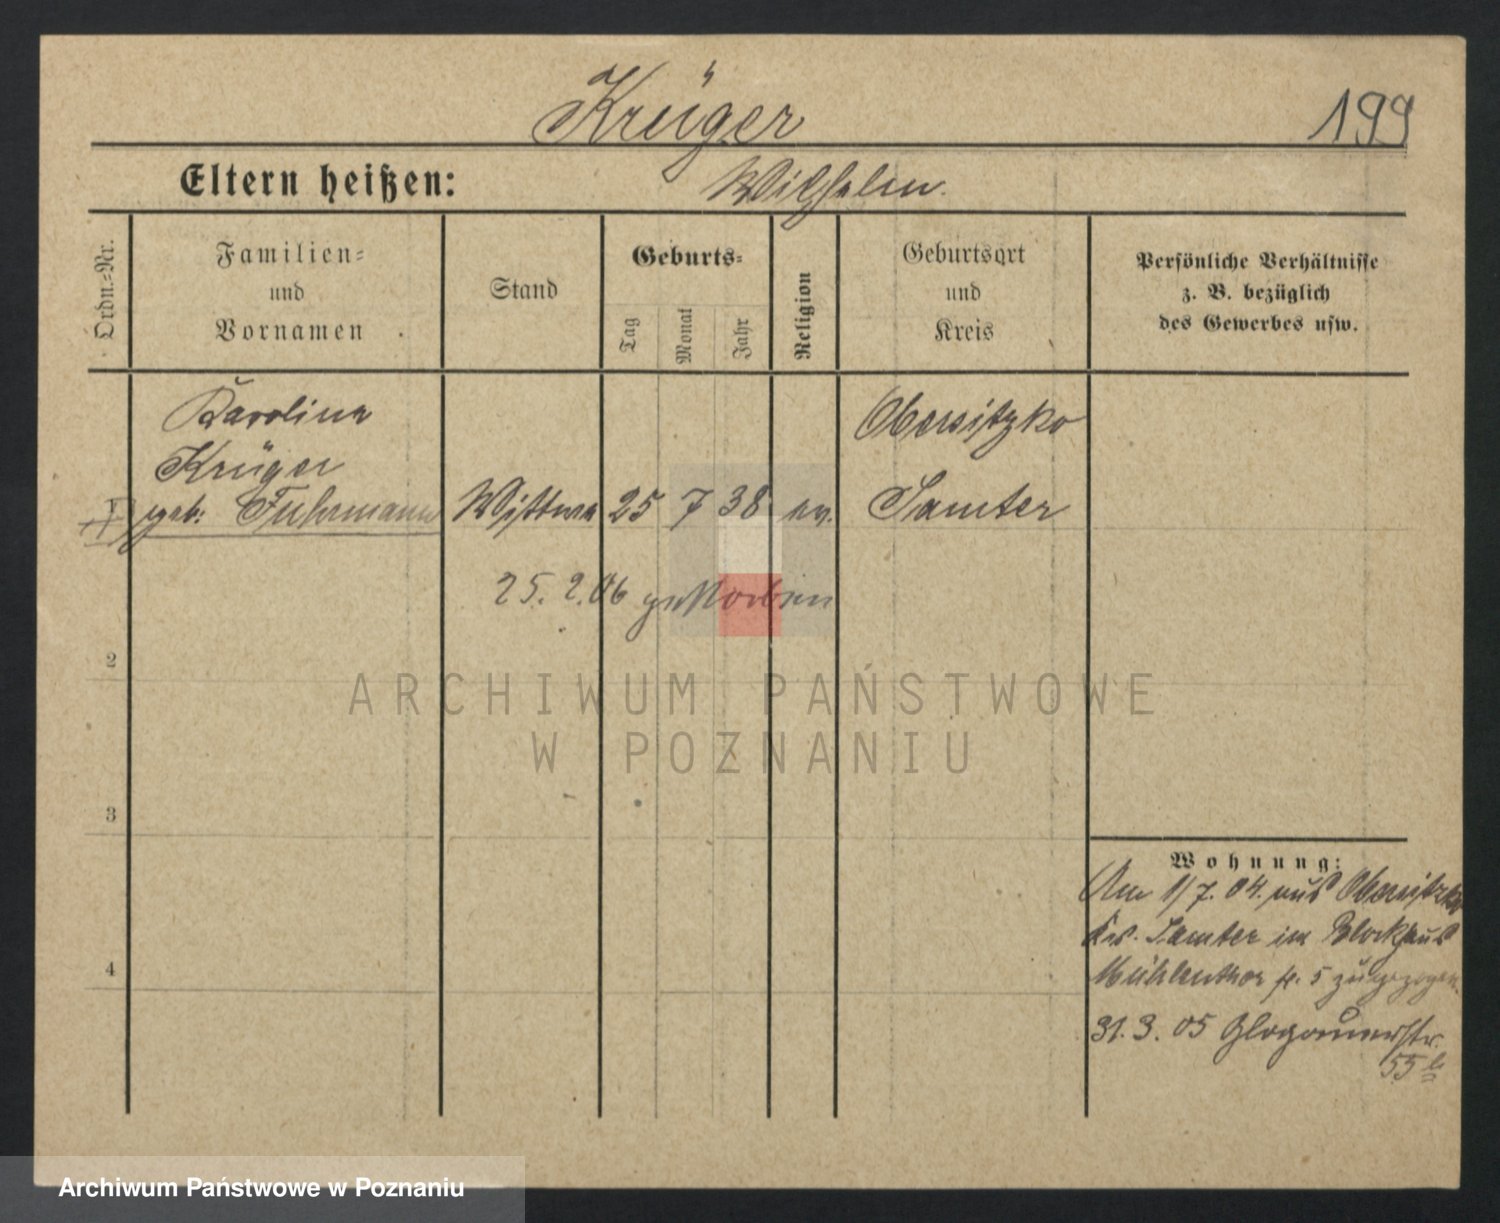 Krüger
199
Eltern heißen:
Wilhelm.
Ordn.-Nr.
Familien-
und
Vornamen
Stand
Geburts-
Tag
Monat
Jahr
Religion
Geburtsort
und
Kreis
Persönliche Verhältnisse
z. B. bezüglich
des Gewerbes usw.
Karolina
Krüger
1 geb: Fuhrmann Wittwe 25 7 38 ev.
Obersitzko
Samter
25. 2. 06 gestorben
2
3
4
ARCHIWUM PAŃSTWOWE
W POZNANIU
Wohnung:
Am 1/7. 04. aus Obersitzko
Krs. Samter im Blockhaus
Mühlenthor 5 zugezogen.
31. 3. 05 Glogauerstr.
55b
Archiwum Państwowe w Poznaniu